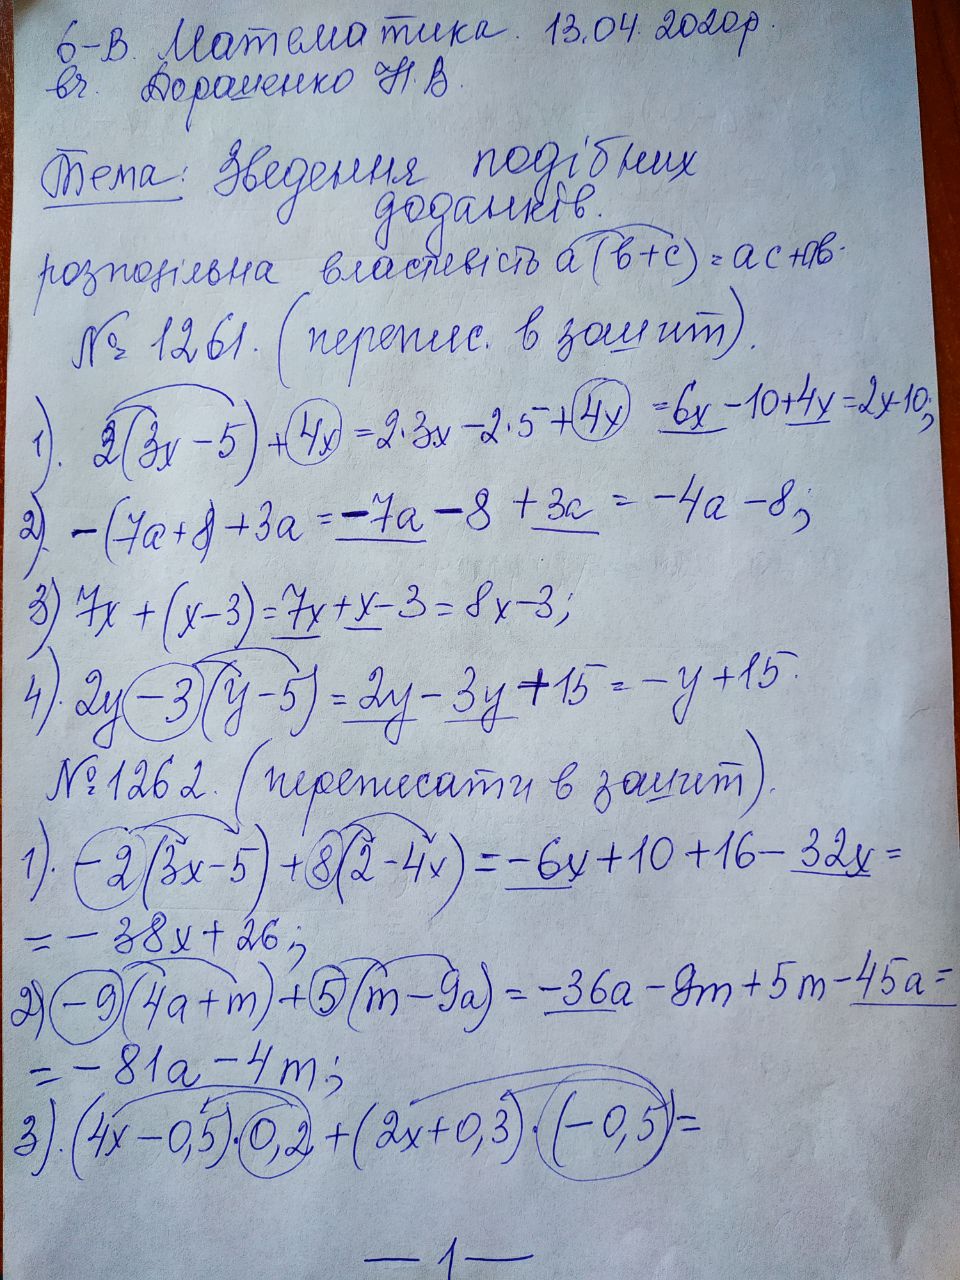 6-В. Математика. 13.04.2020р.
вч. Дораченко Н.В.
Тема: Зведення подібних
доданків.
розподільна властивість a(в+c)=ac+ав.
№ 1261. (перепис. в зошит).
1). 2(3x-5)+4x=2·3x-2·5+4x=6x-10+4x=2x-10;
2). -(7a+8)+3a=-7a-8+3a=-4a-8;
3) 7x+(x-3)=7x+x-3=8x-3;
4). 2y-3(y-5)=2y-3y+15=-y+15.
№1262. (переписати в зошит).
1). -2(3x-5)+8(2-4x)=-6x+10+16-32x=
=-38x+26;
2) -9(4a+m)+5(m-9a)=-36a-9m+5m-45a=
=-81a-4m;
3). (4x-0,5)·0,2+(2x+0,3)·(-0,5)=
— 1 —